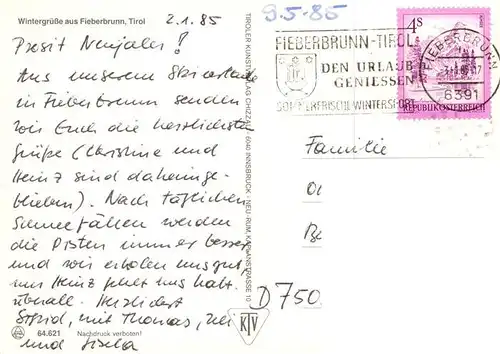 Wintergrüße aus Fieberbrunn, Tirol
2.1.85
Prosit Neujahr!
Aus unserem Skiurlaub
in Fieberbrunn senden
wir Euch die herzlichsten
Grüße (Christine und
Heinz sind daheimge-
blieben). Nach täglichen
Schneefällen werden
die Pisten immer besser
und wir erholen uns gut,
nur Heinz fehlt uns halt
überall. Herzlichst
Astrid, mit Thomas, Uli
und Gisela
64.621 Nachdruck verboten!
TIROLER KUNSTVERLAG CHIZZALI, 6040 INNSBRUCK - NEU-RUM, KAPLANSTRASSE 10
KTV
9.5.85
FIEBERBRUNN-TIROL
DEN URLAUB
GENIESSEN
SOMMERFRISCH WINTERSPORT
4S
REPUBLIK ÖSTERREICH
FIEBERBRUNN
6391
Familie
D 750